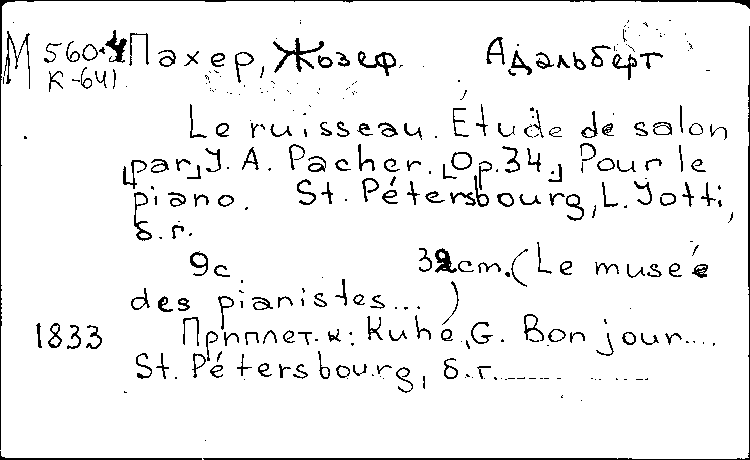 М 560-4 Пахер, Жозеф Адальберт
К-641
Le ruisseau. Étude de salon
[par] J. A. Pacher. [Op. 34.] Pour le
piano. St. Pétersbourg, L. Jotti,
б. г.
9с 32cm. (Le museé
des pianistes...)
1833 Приплет. к: Kuhé, G. Bonjour....
St. Pétersbourg, б. г.